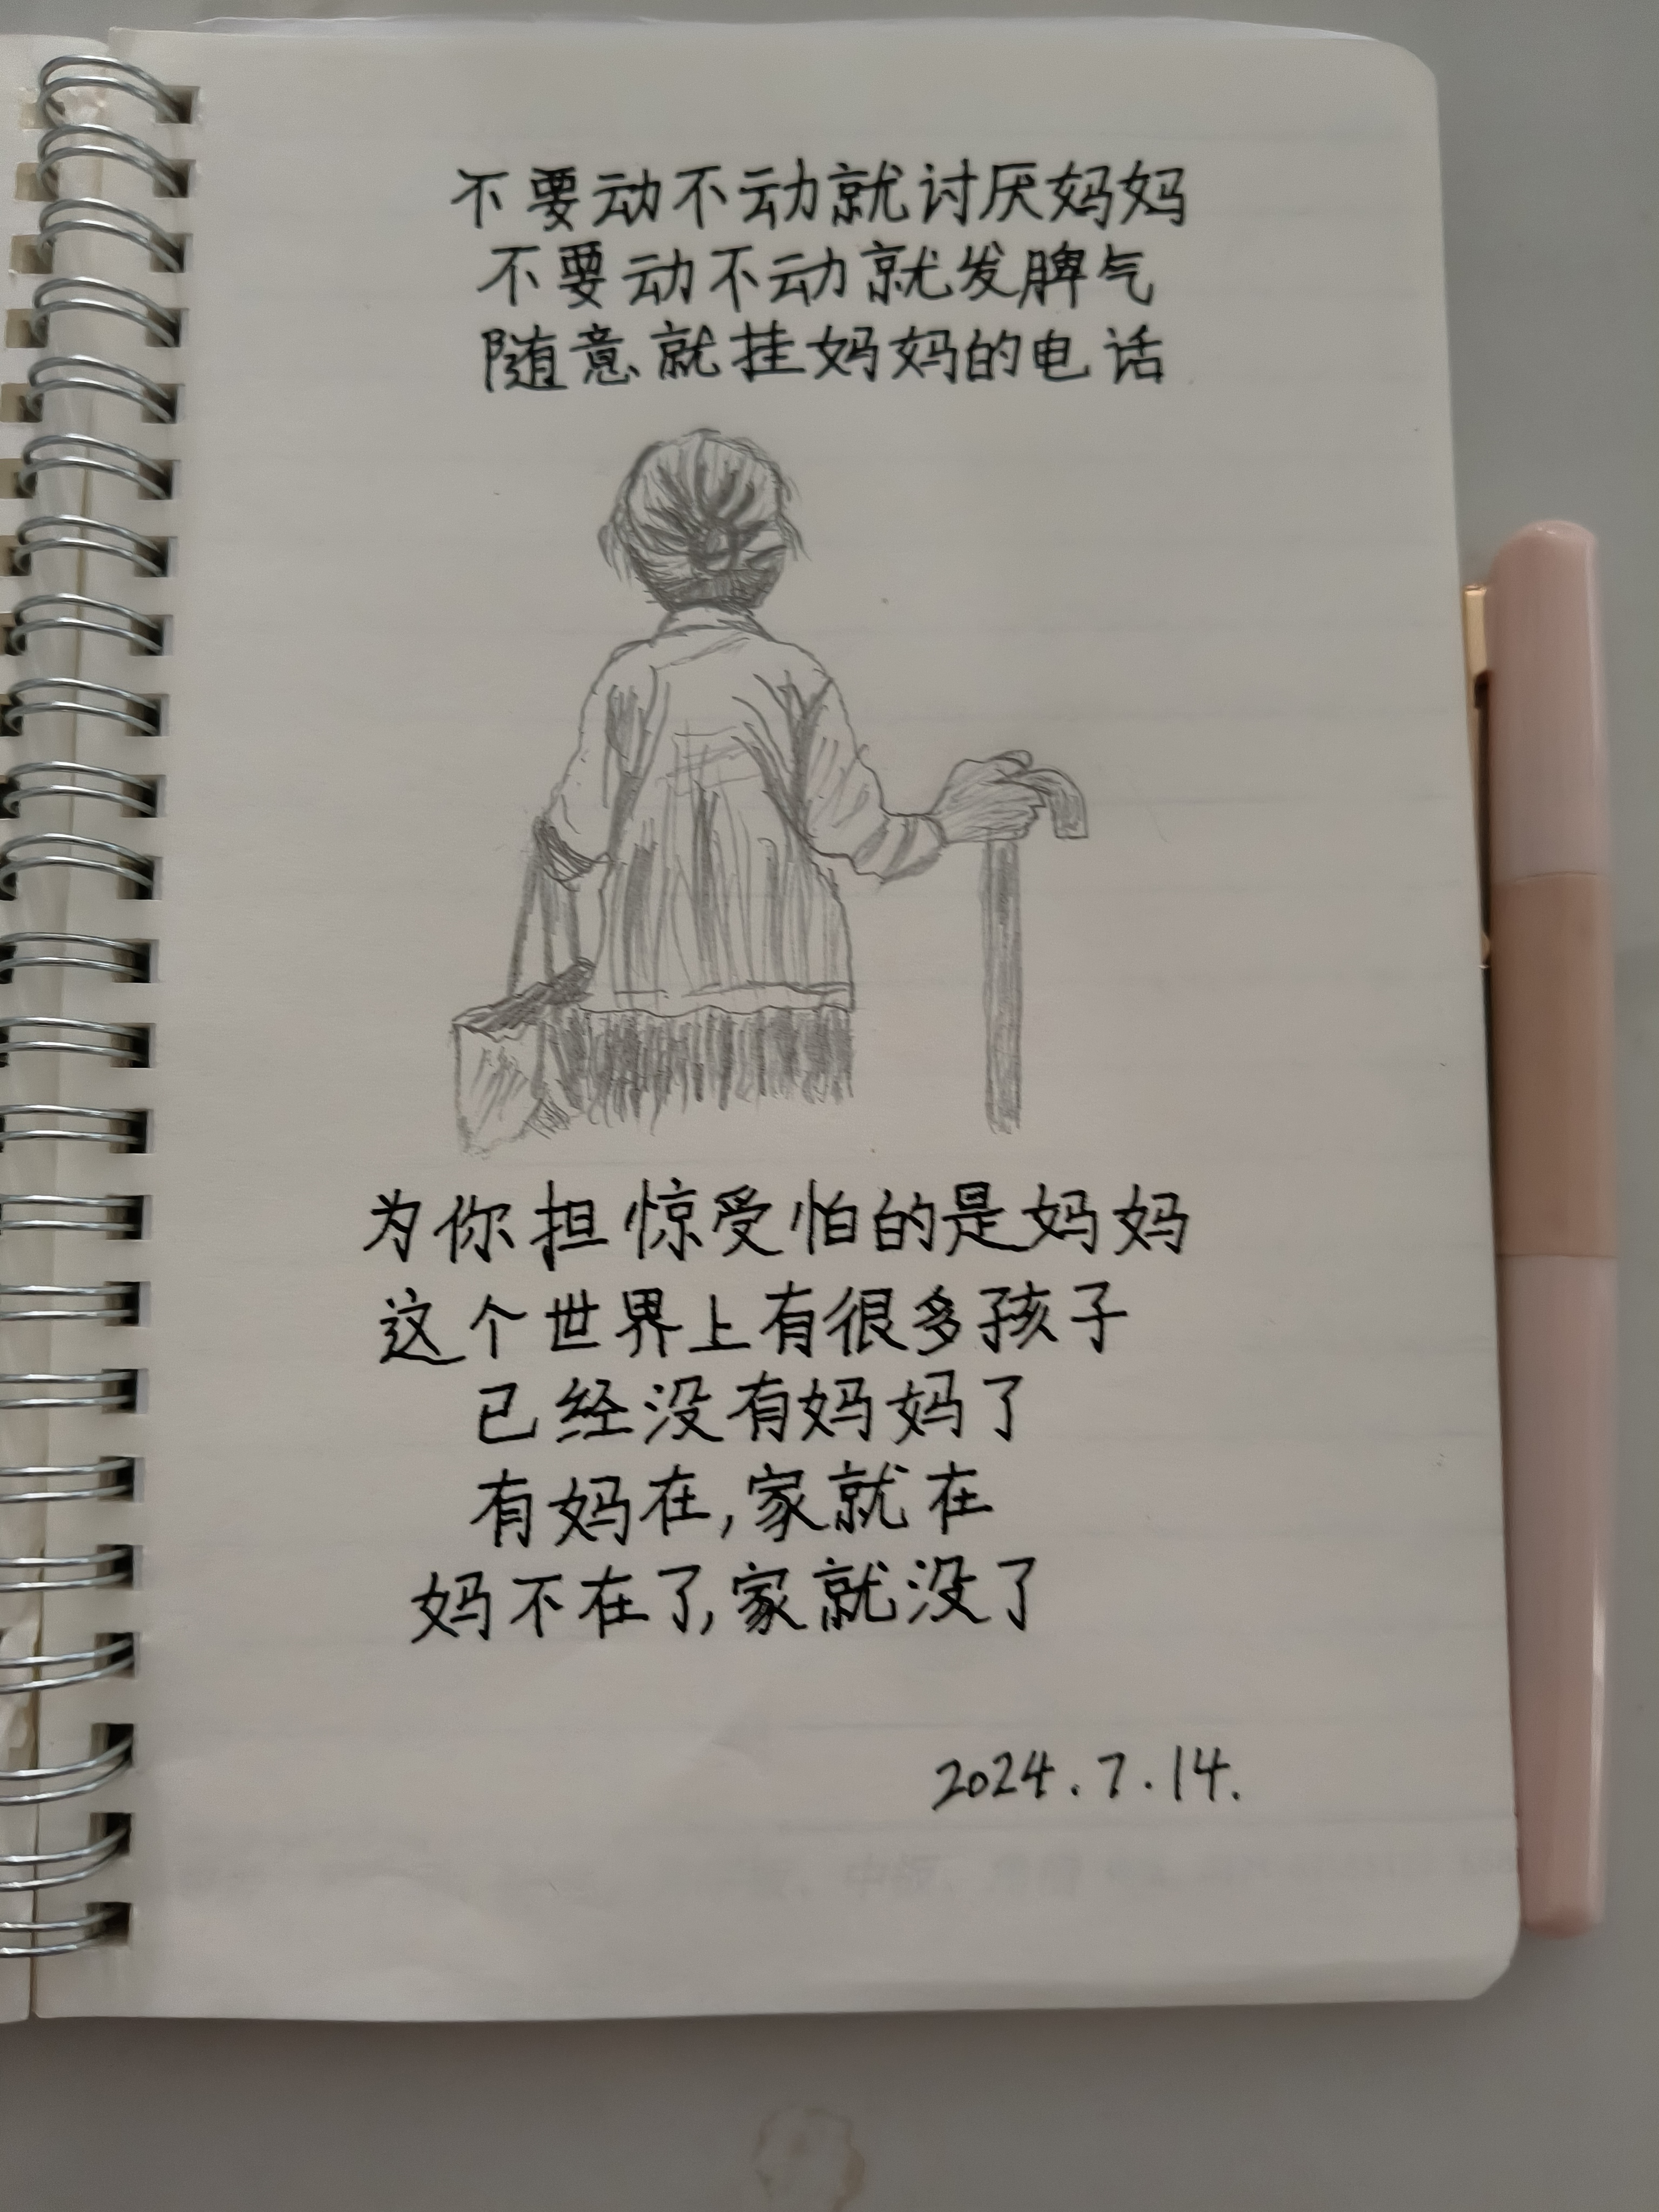 不要动不动就讨厌妈妈
不要动不动就发脾气
随意就挂妈妈的电话
为你担惊受怕的是妈妈
这个世界上有很多孩子
已经没有妈妈了
有妈在,家就在
妈不在了,家就没了
2024.7.14.